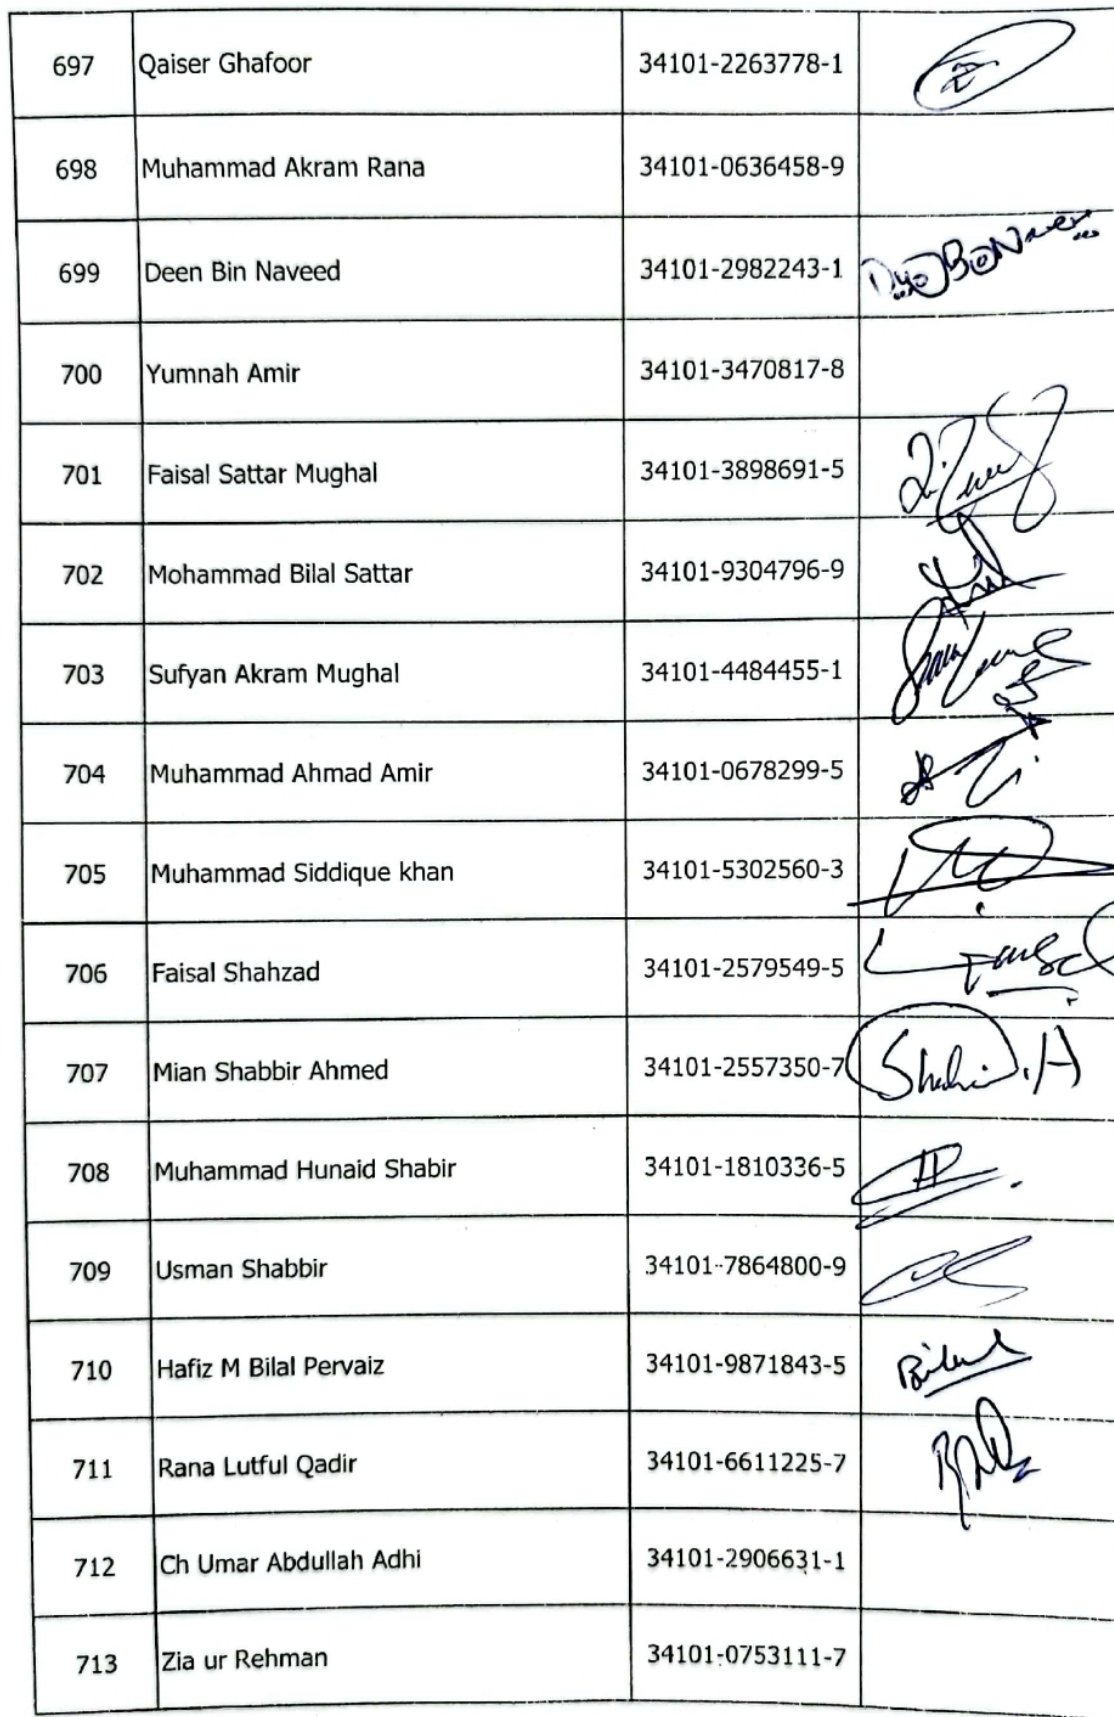 697 Qaiser Ghafoor 34101-2263778-1
698 Muhammad Akram Rana 34101-0636458-9
699 Deen Bin Naveed 34101-2982243-1
700 Yumnah Amir 34101-3470817-8
701 Faisal Sattar Mughal 34101-3898691-5
702 Mohammad Bilal Sattar 34101-9304796-9
703 Sufyan Akram Mughal 34101-4484455-1
704 Muhammad Ahmad Amir 34101-0678299-5
705 Muhammad Siddique khan 34101-5302560-3
706 Faisal Shahzad 34101-2579549-5
707 Mian Shabbir Ahmed 34101-2557350-7
708 Muhammad Hunaid Shabir 34101-1810336-5
709 Usman Shabbir 34101-7864800-9
710 Hafiz M Bilal Pervaiz 34101-9871843-5 Bilal
711 Rana Lutful Qadir 34101-6611225-7
712 Ch Umar Abdullah Adhi 34101-2906631-1
713 Zia ur Rehman 34101-0753111-7